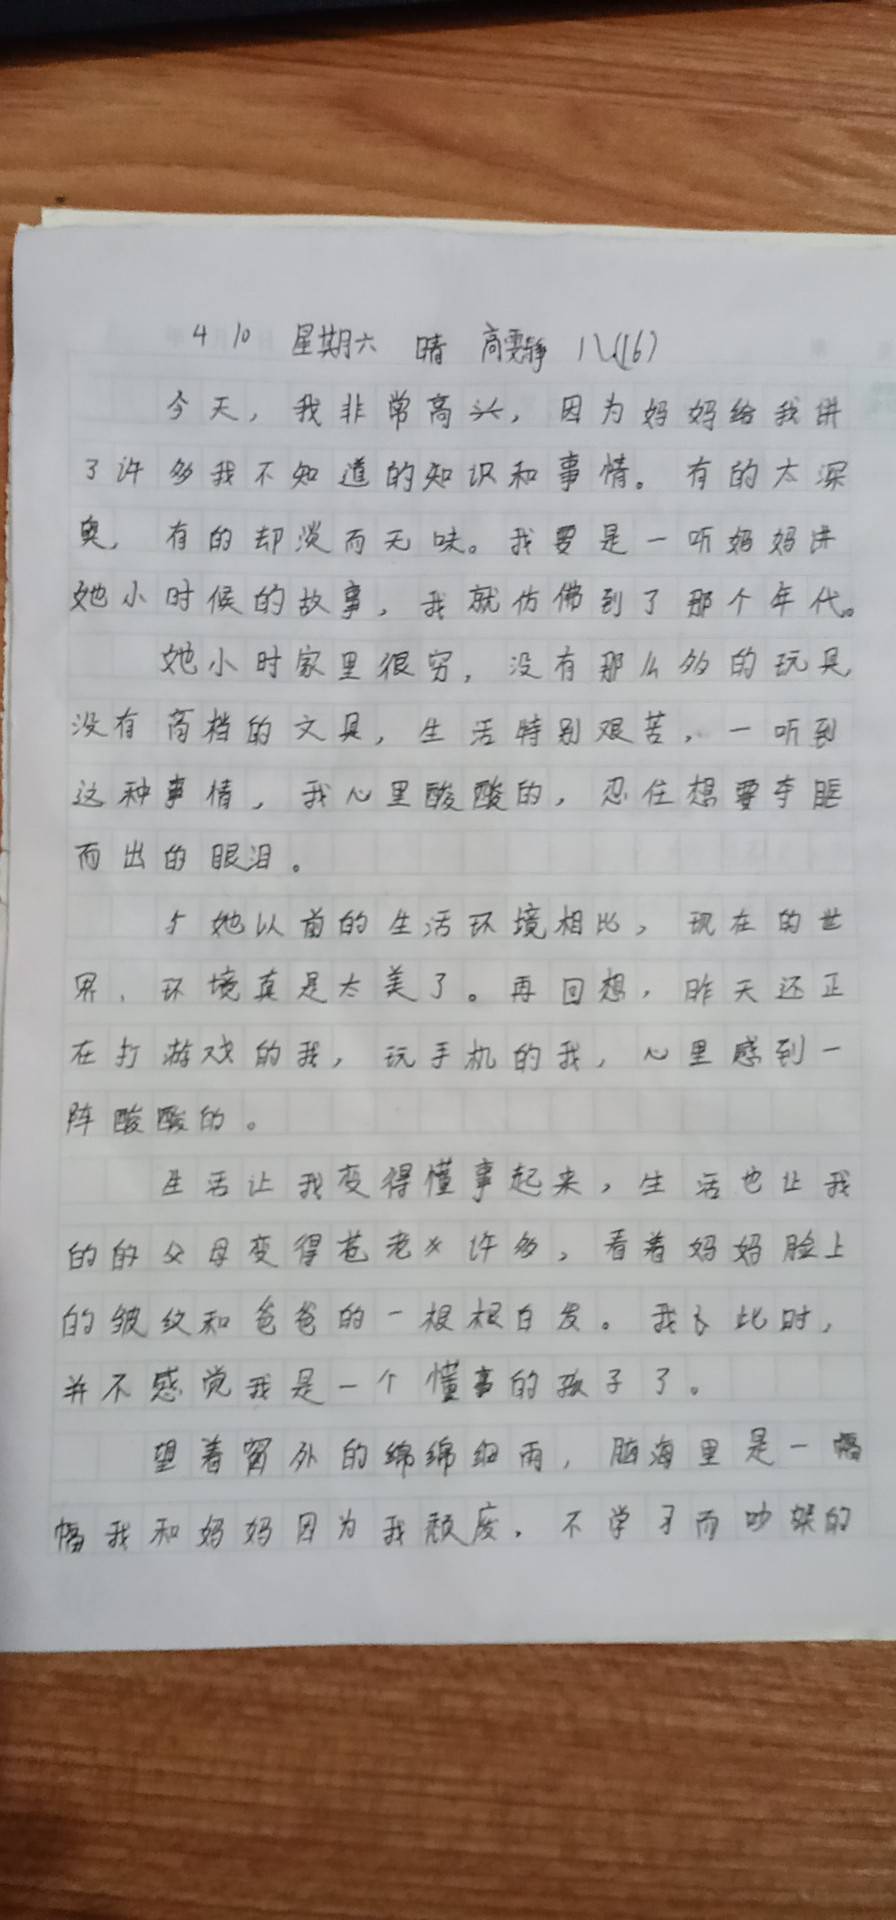 4 10 星期六 晴 高雯静 八(16)
今天，我非常高兴，因为妈妈给我讲
了许多我不知道的知识和事情。有的太深
奥，有的却淡而无味。我要是一听妈妈讲
她小时候的故事，我就仿佛到了那个年代。
她小时家里很穷，没有那么多的玩具，
没有高档的文具，生活特别艰苦，一听到
这种事情，我心里酸酸的，忍住想要夺眶
而出的眼泪。
与她以前的生活环境相比，现在的世
界、环境真是太美了。再回想，昨天还正
在打游戏的我，玩手机的我，心里感到一
阵酸酸的。
生活让我变得懂事起来，生活也让我
的的父母变得苍老许多，看着妈妈脸上
的皱纹和爸爸的一根根白发。我此时，
并不感觉我是一个懂事的孩子了。
望着窗外的绵绵细雨，脑海里是一幅
幅我和妈妈因为我颓废，不学习而吵架的